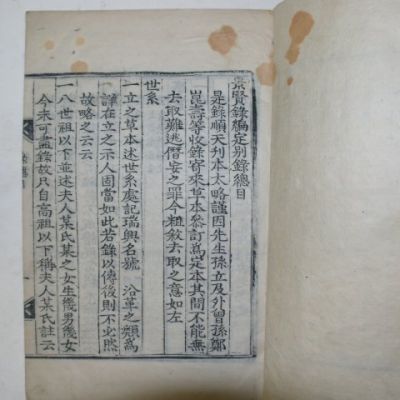 景賢錄編定別錄總目
是錄順天刊本太略謹因先生孫立及外曾孫鄭
崑壽等收錄寄來草本參訂爲定本其間不能無
去取難逃僭妄之罪今粗敘去取之意如左
世系
一立之草本述世系處記瑞興名號沿革之類爲
譁在立之示人固當如此若錄以傳後則不必然
故略之云云
一八世祖以下並述夫人某氏某之女生幾男幾女
今未可盡錄故只自高祖以下稱夫人某氏註云